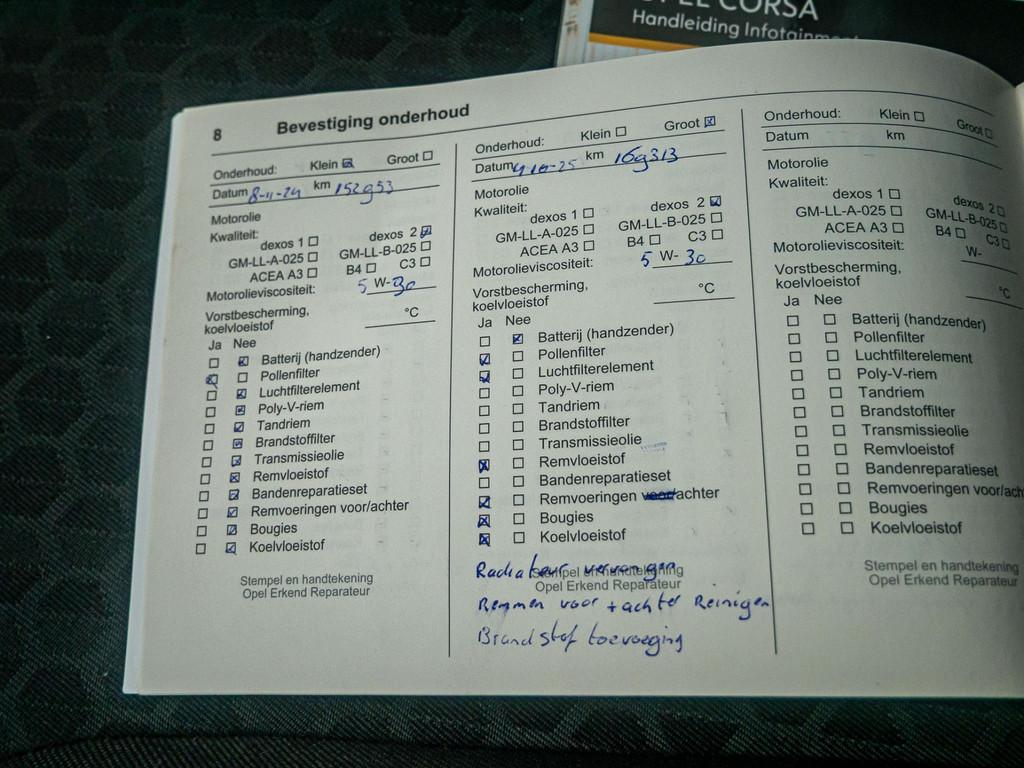 OPEL CORSA
Handleiding Infotainment
8 Bevestiging onderhoud
Onderhoud: Klein ☒ Groot ☐
Datum 8-11-24 km 152953
Motorolie
Kwaliteit:
dexos 1 ☐ dexos 2 ☑
GM-LL-A-025 ☐ GM-LL-B-025 ☐
ACEA A3 ☐ B4 ☐ C3 ☐
Motorolieviscositeit: 5 W-30
Vorstbescherming,
koelvloeistof °C
Ja Nee
☐ ☒ Batterij (handzender)
☒ ☐ Pollenfilter
☐ ☒ Luchtfilterelement
☐ ☒ Poly-V-riem
☐ ☑ Tandriem
☐ ☒ Brandstoffilter
☐ ☒ Transmissieolie
☐ ☒ Remvloeistof
☐ ☑ Bandenreparatieset
☐ ☑ Remvoeringen voor/achter
☐ ☑ Bougies
☐ ☑ Koelvloeistof
Stempel en handtekening
Opel Erkend Reparateur
Onderhoud: Klein ☐ Groot ☒
Datum 9-10-25 km 169313
Motorolie
Kwaliteit:
dexos 1 ☐ dexos 2 ☑
GM-LL-A-025 ☐ GM-LL-B-025 ☐
ACEA A3 ☐ B4 ☐ C3 ☐
Motorolieviscositeit: 5 W-30
Vorstbescherming,
koelvloeistof °C
Ja Nee
☐ ☒ Batterij (handzender)
☑ ☐ Pollenfilter
☑ ☐ Luchtfilterelement
☐ ☐ Poly-V-riem
☐ ☐ Tandriem
☐ ☐ Brandstoffilter
☐ ☐ Transmissieolie
☒ ☐ Remvloeistof
☐ ☐ Bandenreparatieset
☑ ☐ Remvoeringen voor/achter
☒ ☐ Bougies
☒ ☐ Koelvloeistof
Radiateur vervangen
Stempel en handtekening
Opel Erkend Reparateur
Remmen voor + achter Reinigen
Brandstof toevoeging
Onderhoud: Klein ☐ Groot ☐
Datum km
Motorolie
Kwaliteit:
dexos 1 ☐ dexos 2 ☐
GM-LL-A-025 ☐ GM-LL-B-025 ☐
ACEA A3 ☐ B4 ☐ C3 ☐
Motorolieviscositeit: W-
Vorstbescherming,
koelvloeistof °C
Ja Nee
☐ ☐ Batterij (handzender)
☐ ☐ Pollenfilter
☐ ☐ Luchtfilterelement
☐ ☐ Poly-V-riem
☐ ☐ Tandriem
☐ ☐ Brandstoffilter
☐ ☐ Transmissieolie
☐ ☐ Remvloeistof
☐ ☐ Bandenreparatieset
☐ ☐ Remvoeringen voor/ach
☐ ☐ Bougies
☐ ☐ Koelvloeistof
Stempel en handtekening
Opel Erkend Reparateur